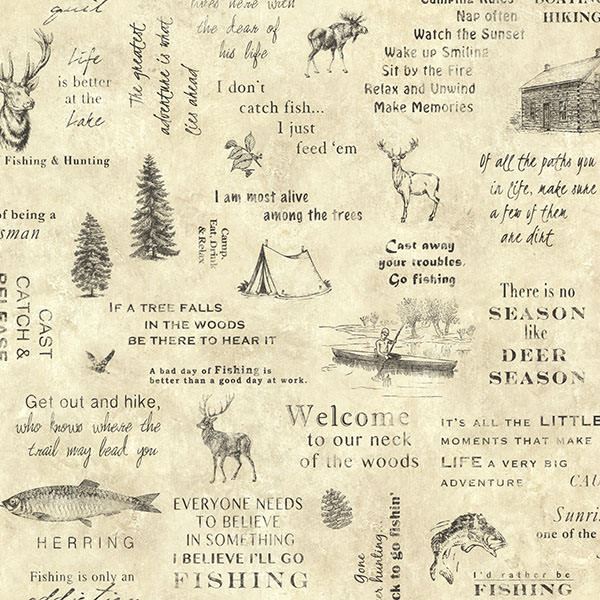 quit
lives here with
the dear of
his life
Camping Rules
Nap often
Watch the Sunset
Wake up Smiling
Sit by the Fire
Relax and Unwind
Make Memories
BOATING
HIKING
Life
is better
at the
Lake
The greatest
adventure is what
lies ahead
I don't
catch fish...
I just
feed 'em
Fishing & Hunting
Of all the paths you
in life, make sure
a few of them
are dirt
I am most alive
among the trees
of being a
sman
Camp,
Eat, Drink
& Relax
Cast away
your troubles,
Go fishing
CAST
CATCH &
RELEASE
There is no
SEASON
like
DEER
SEASON
IF A TREE FALLS
IN THE WOODS
BE THERE TO HEAR IT
A bad day of Fishing is
better than a good day at work.
Get out and hike,
who knows where the
trail may lead you
Welcome
to our neck
of the woods
IT'S ALL THE LITTLE
MOMENTS THAT MAKE
LIFE A VERY BIG
ADVENTURE
CAU
HERRING
EVERYONE NEEDS
TO BELIEVE
IN SOMETHING
I BELIEVE I'LL GO
FISHING
Gone
r hunting...
ck to go fishin'
Sunri
one of the
I'd rather be
FISHING
Fishing is only an
addiction